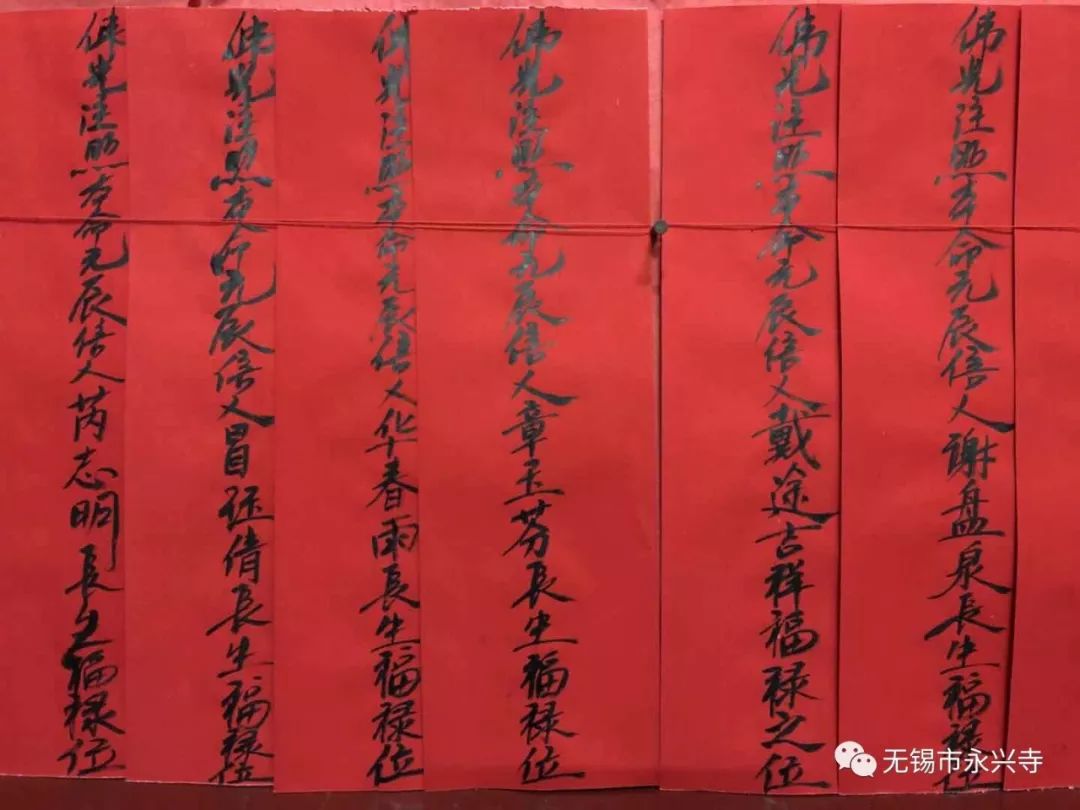 佛光注照本命元辰信人谢盘泉长生福禄位
佛光注照本命元辰信人戴途吉祥福禄之位
佛光注照本命元辰信人章玉芬長生福禄位
佛光注照本命元辰信人华春雨長生福禄位
佛光注照本命元辰信人冒钰倩長生福禄位
佛光注照本命元辰信人芮志明長生福禄位
无锡市永兴寺